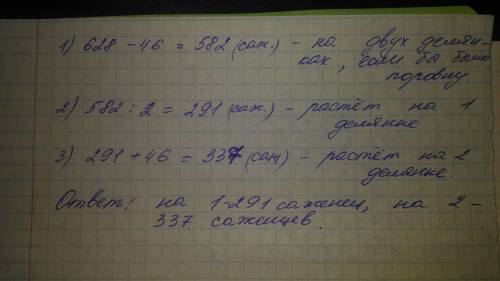 1) 628 - 46 = 582 (саж.) - на двух делян-
ках, если бы было
поровну
2) 582 : 2 = 291 (саж.) - растёт на 1
делянке
3) 291 + 46 = 337 (саж) - растёт на 2
делянке.
Ответ: на 1-291 саженец, на 2-
337 саженцев.